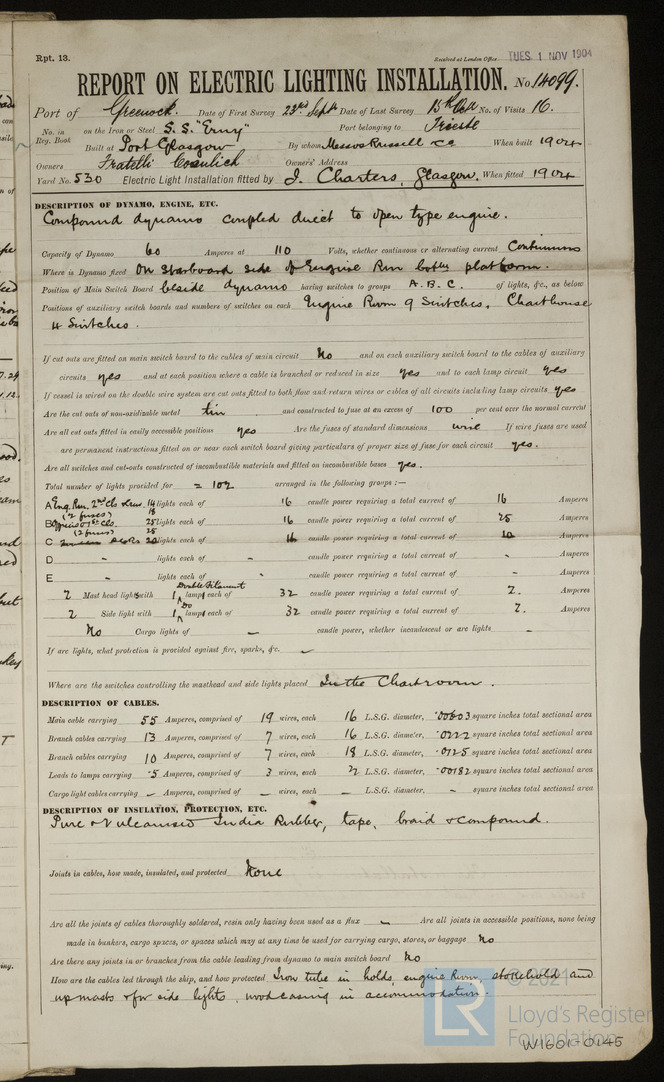 Rpt. 13.
Received at London Office TUES. 1 NOV 1904
REPORT ON ELECTRIC LIGHTING INSTALLATION. No. 14099.
Port of Greenock. Date of First Survey 23rd Sept Date of Last Survey 15th Oct No. of Visits 16.
No. in Reg. Book on the Iron or Steel S.S. "Erny" Port belonging to Trieste
Built at Port Glasgow By whom Messrs Russell & Co When built 1904
Owners Fratelli Cosulich Owners' Address
Yard No. 530 Electric Light Installation fitted by J. Charters, Glasgow. When fitted 1904
DESCRIPTION OF DYNAMO, ENGINE, ETC.
Compound dynamo coupled direct to open type engine.
Capacity of Dynamo 60 Amperes at 110 Volts, whether continuous or alternating current Continuous
Where is Dynamo fixed On starboard side of Engine Rm bottom platform.
Position of Main Switch Board beside dynamo having switches to groups A. B. C. of lights, &c., as below
Positions of auxiliary switch boards and numbers of switches on each Engine Room 9 Switches, Charthouse
4 Switches.
If cut outs are fitted on main switch board to the cables of main circuit No and on each auxiliary switch board to the cables of auxiliary
circuits yes and at each position where a cable is branched or reduced in size yes and to each lamp circuit yes
If vessel is wired on the double wire system are cut outs fitted to both flow and return wires or cables of all circuits including lamp circuits yes
Are the cut outs of non-oxidizable metal tin and constructed to fuse at an excess of 100 per cent over the normal current
Are all cut outs fitted in easily accessible positions yes Are the fuses of standard dimensions wire If wire fuses are used
are permanent instructions fitted on or near each switch board giving particulars of proper size of fuse for each circuit yes.
Are all switches and cut-outs constructed of incombustible materials and fitted on incombustible bases yes.
Total number of lights provided for = 102 arranged in the following groups :—
A Eng. Rm. 2nd Cls 14 lights each of 16 candle power requiring a total current of 16 Amperes
(2 fuses) 18
B 1st Cls. 25 lights each of 16 candle power requiring a total current of 25 Amperes
(2 fuses) 25
C 20 lights each of 16 candle power requiring a total current of 10 Amperes
D - lights each of - candle power requiring a total current of - Amperes
E - lights each of - candle power requiring a total current of - Amperes
Double Filament
2 Mast head lights with 1 lamps each of 32 candle power requiring a total current of 2. Amperes
Do
2 Side light with 1 lamps each of 32 candle power requiring a total current of 2. Amperes
No Cargo lights of - candle power, whether incandescent or arc lights -
If arc lights, what protection is provided against fire, sparks, &c. -
Where are the switches controlling the masthead and side lights placed In the Chartroom.
DESCRIPTION OF CABLES.
Main cable carrying 55 Amperes, comprised of 19 wires, each 16 L.S.G. diameter, .00603 square inches total sectional area
Branch cables carrying 13 Amperes, comprised of 7 wires, each 16 L.S.G. diameter, .0222 square inches total sectional area
Branch cables carrying 10 Amperes, comprised of 7 wires, each 18 L.S.G. diameter, .0125 square inches total sectional area
Leads to lamps carrying .5 Amperes, comprised of 3 wires, each 22 L.S.G. diameter, .00182 square inches total sectional area
Cargo light cables carrying - Amperes, comprised of - wires, each - L.S.G. diameter, - square inches total sectional area
DESCRIPTION OF INSULATION, PROTECTION, ETC.
Pure & Vulcanised India Rubber, tape, braid & compound.
Joints in cables, how made, insulated, and protected None
Are all the joints of cables thoroughly soldered, resin only having been used as a flux - Are all joints in accessible positions, none being
made in bunkers, cargo spaces, or spaces which may at any time be used for carrying cargo, stores, or baggage No
Are there any joints in or branches from the cable leading from dynamo to main switch board No
How are the cables led through the ship, and how protected Iron tube in holds, engine Room, stokehold and
up masts & for side lights, wood casing in accommodation.
© 2021
LR Lloyd's Register
Foundation
W1601-0145